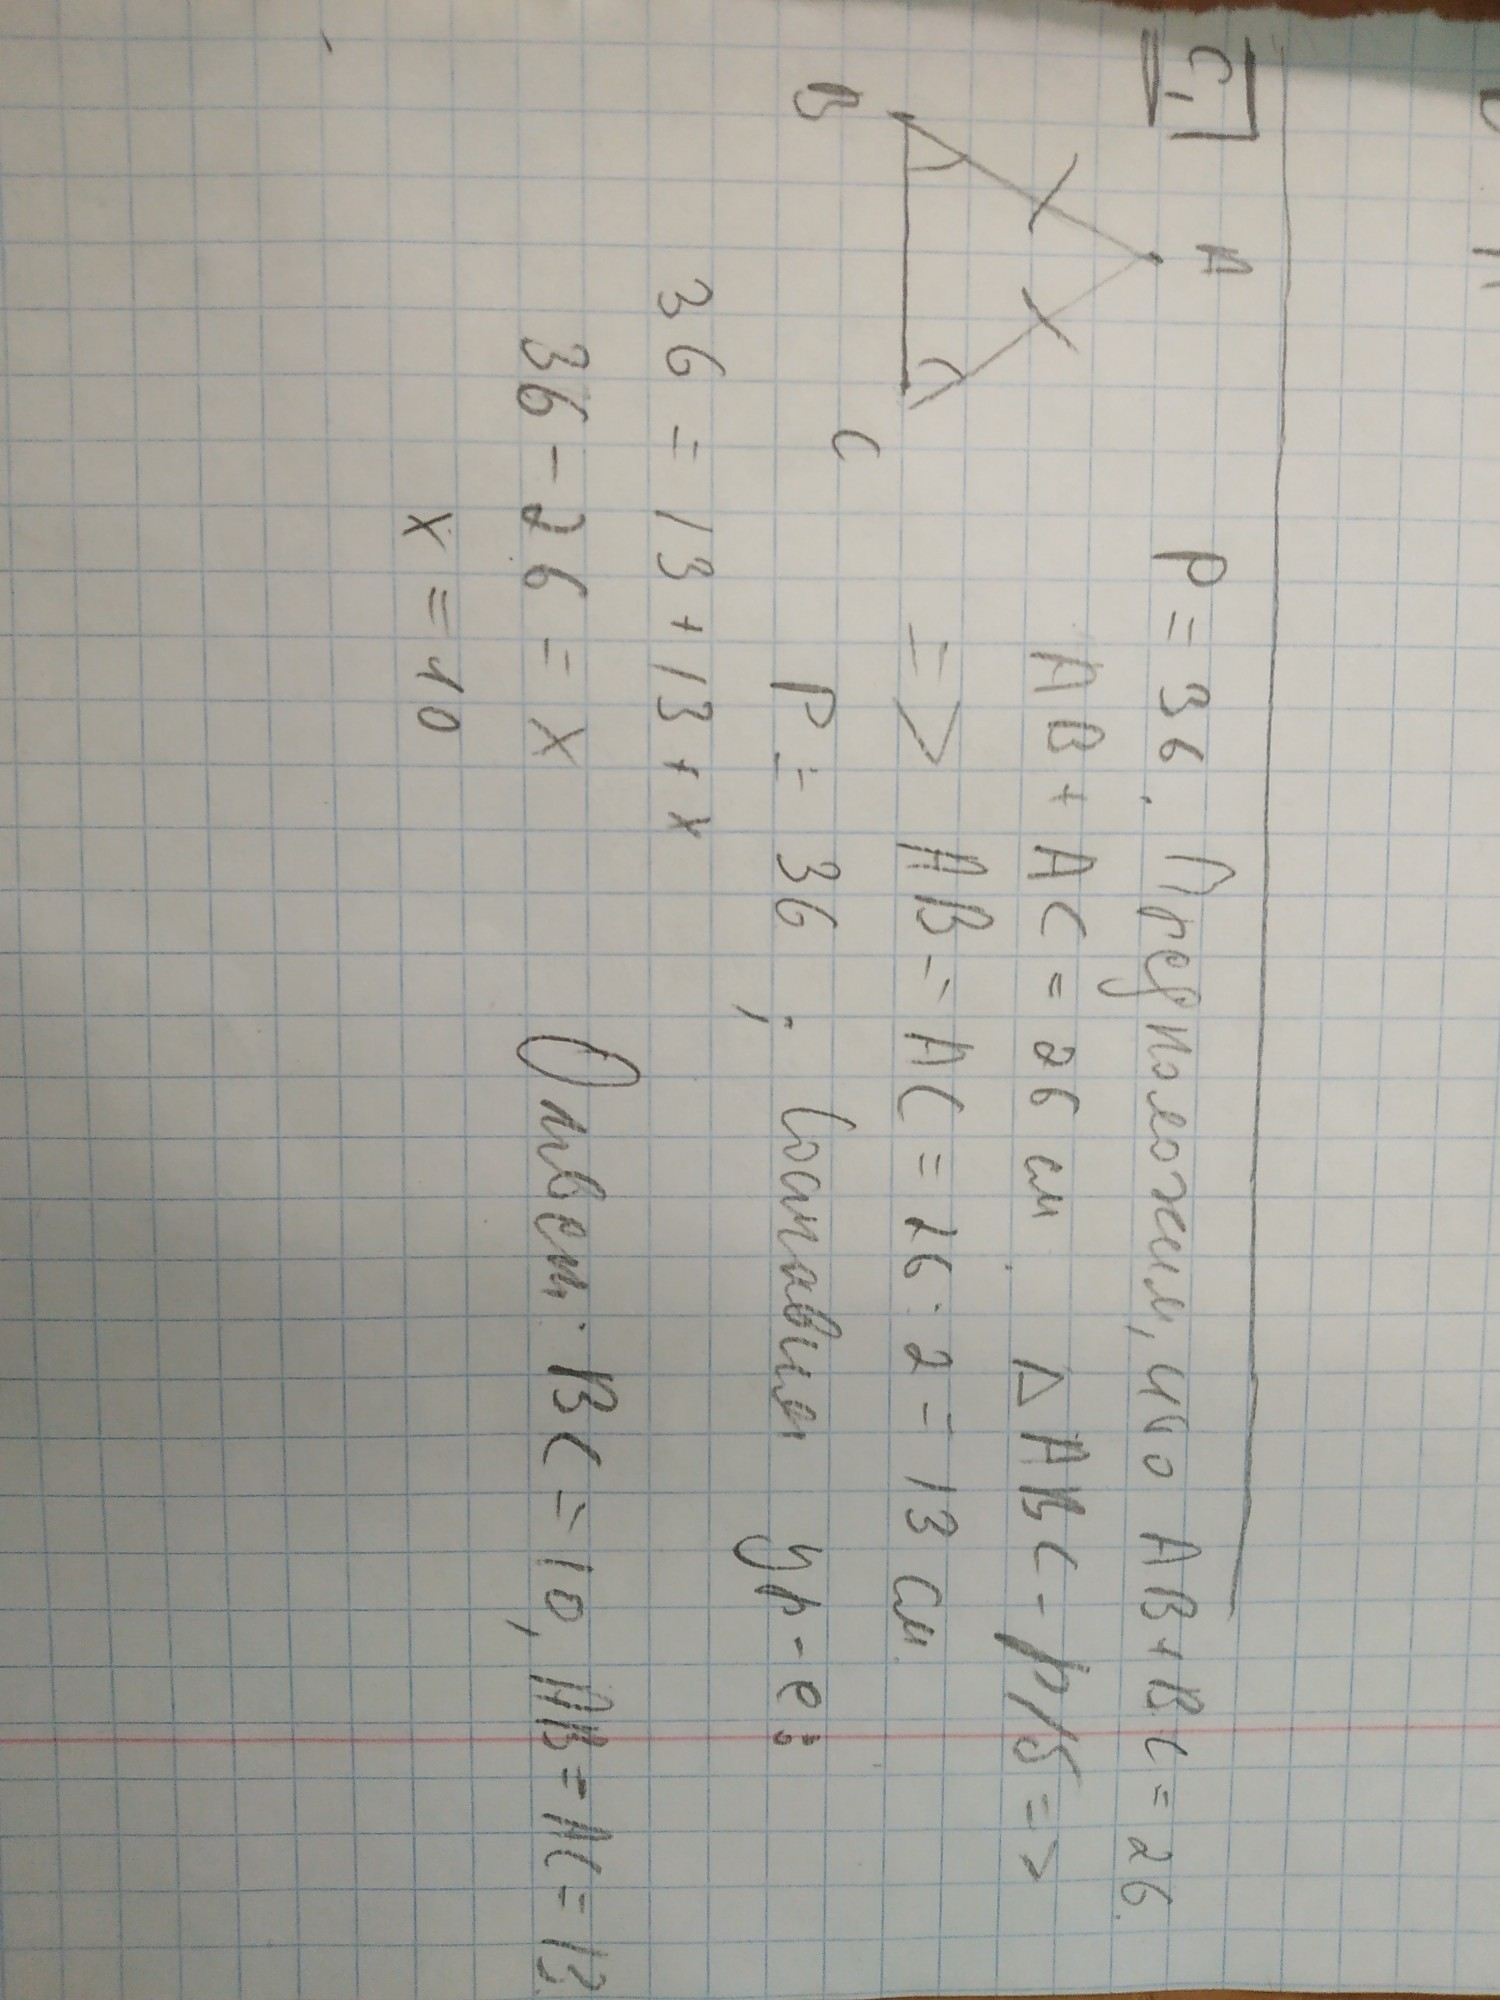 C₁
A
B
C
P = 36. Предположим, что AB + BC = 26.
AB + AC = 26 см. △ABC - р/б =>
=> AB = AC = 26 : 2 = 13 см.
P = 36 ; Составим ур-е:
36 = 13 + 13 + x
36 - 26 = x
x = 10
Ответ: BC = 10, AB = AC = 13.